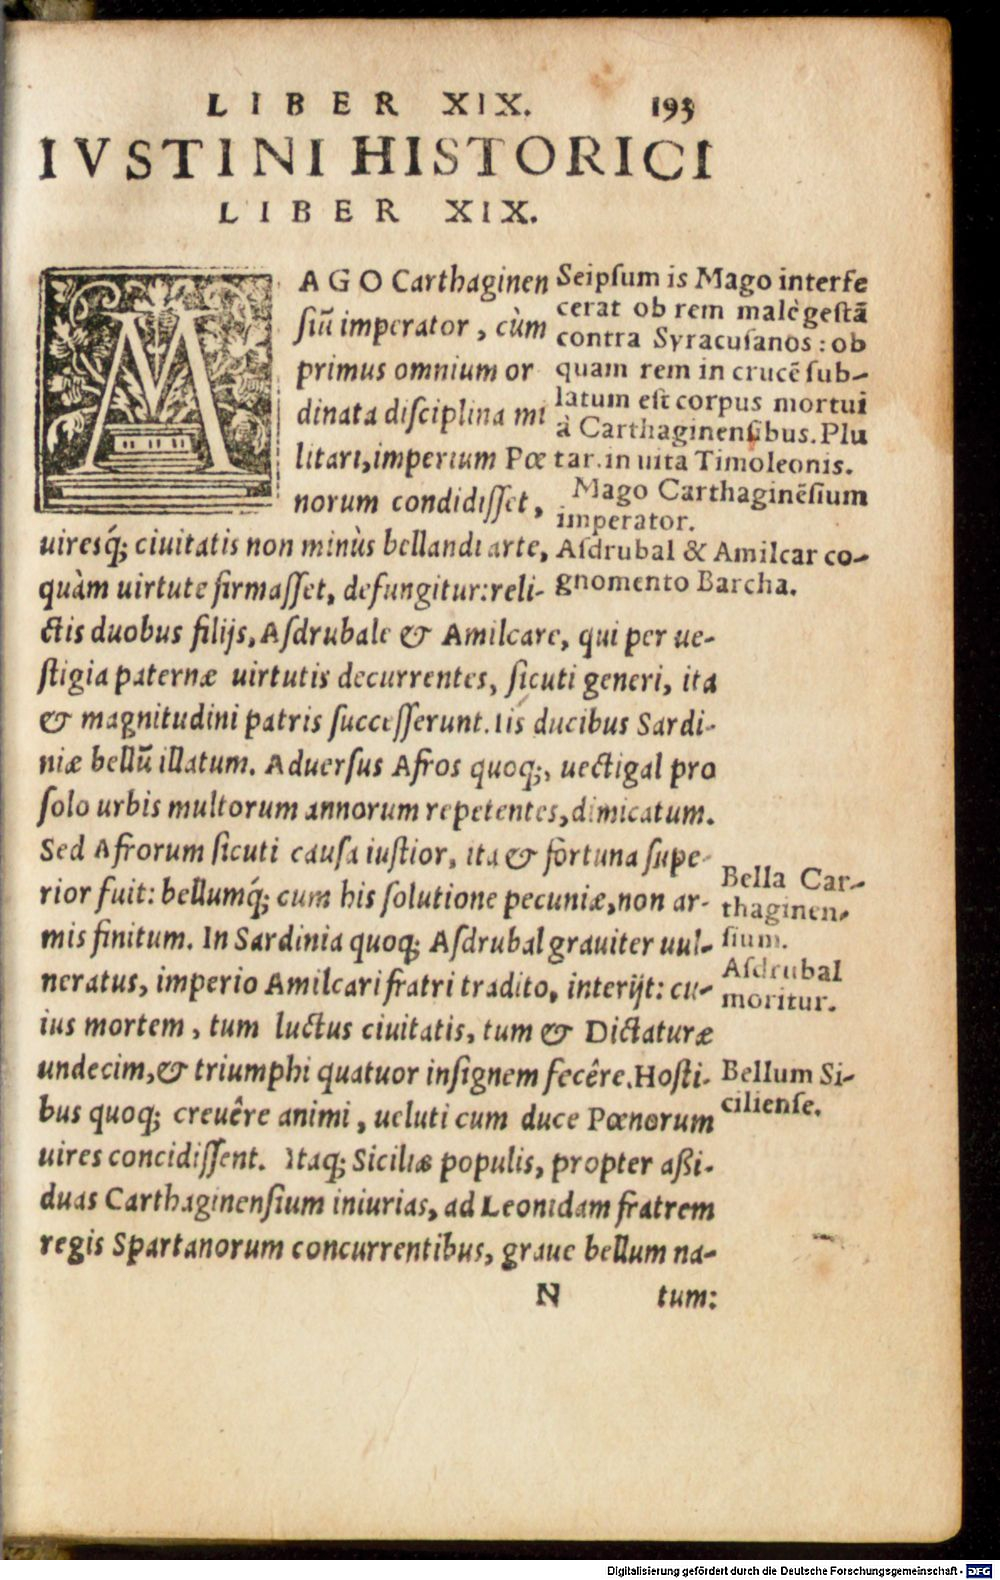 LIBER XIX. 193
IVSTINI HISTORICI
LIBER XIX.
MAGO Carthaginen
siũ imperator, cùm
primus omnium or
dinata disciplina mi
litari, imperium Pœ
norum condidisset,
uiresq́; ciuitatis non minùs bellandi arte,
quàm uirtute firmasset, defungitur: reli-
ctis duobus filijs, Asdrubale & Amilcare, qui per ue-
stigia paternæ uirtutis decurrentes, sicuti generi, ita
& magnitudini patris successerunt. Iis ducibus Sardi-
niæ bellũ illatum. Aduersus Afros quoq;, uectigal pro
solo urbis multorum annorum repetentes, dimicatum.
Sed Afrorum sicuti causa iustior, ita & fortuna supe-
rior fuit: bellumq́; cum his solutione pecuniæ, non ar-
mis finitum. In Sardinia quoq; Asdrubal grauiter uul-
neratus, imperio Amilcari fratri tradito, interijt: cu-
ius mortem, tum luctus ciuitatis, tum & Dictaturæ
undecim, & triumphi quatuor insignem fecêre. Hosti-
bus quoq; creuêre animi, ueluti cum duce Pœnorum
uires concidissent. Itaq; Siciliæ populis, propter aßi-
duas Carthaginensium iniurias, ad Leonidam fratrem
regis Spartanorum concurrentibus, graue bellum na-
N tum:
Seipsum is Mago interfe
cerat ob rem malè gestã
contra Syracusanos: ob
quam rem in crucẽ sub-
latum est corpus mortui
à Carthaginensibus. Plu
tar. in uita Timoleonis.
Mago Carthaginẽsium
imperator.
Asdrubal & Amilcar co-
gnomento Barcha.
Bella Car-
thaginen-
sium.
Asdrubal
moritur.
Bellum Si-
ciliense.
Digitalisierung gefördert durch die Deutsche Forschungsgemeinschaft - DFG